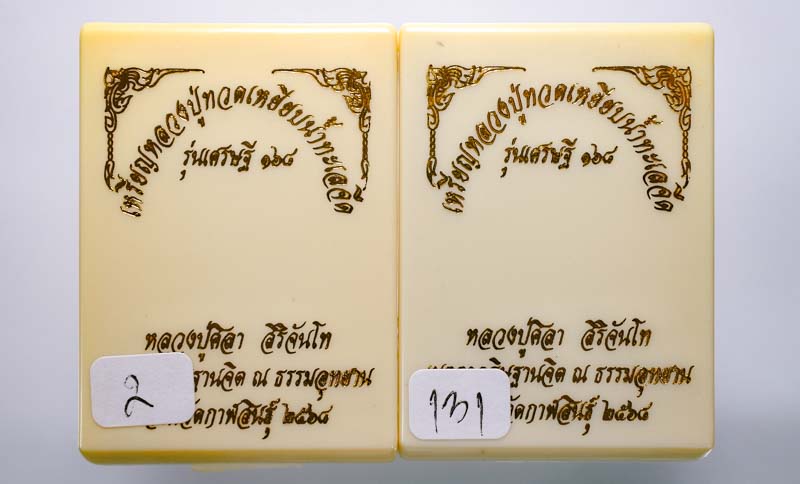 เหรียญหลวงปู่ทวดเหยียบน้ำทะเลจืด
รุ่นเศรษฐี ๑๖๘
หลวงปู่ศิลา สิริจันโท
ฐานจิต ณ ธรรมอุทยาน
วัดกาฬสินธุ์ ๒๕๖๘
2
เหรียญหลวงปู่ทวดเหยียบน้ำทะเลจืด
รุ่นเศรษฐี ๑๖๘
หลวงปู่ศิลา สิริจันโท
ฐานจิต ณ ธรรมอุทยาน
วัดกาฬสินธุ์ ๒๕๖๘
131